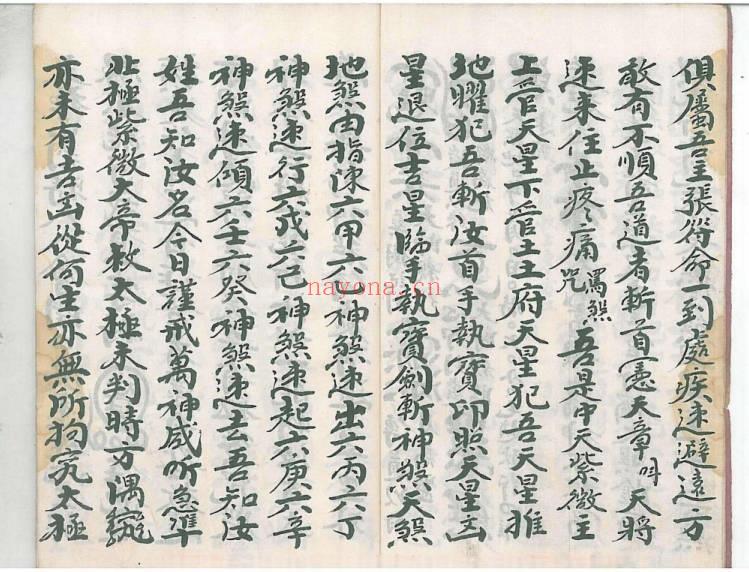 俱屬吾主張符命一到處疾速避遠方
敢有不順吾道者斬首憲天章叫天將
速来住止疼痛咒遇煞吾是中天紫微主
上管天星下管土王府天星犯吾天星推
地曜犯吾斬汝首手執寳印照天星凶
星退位吉星臨手執寳劍斬神煞天煞
地煞由指陳六甲六乙神煞速出六丙六丁
神煞速行六戊六己神煞速起六庚六辛
神煞速傾六壬六癸神煞速去吾知汝
姓吾知汝名今日謹戒萬神咸听急準
北極紫微大帝敕太極未判時方隅
亦未有吉凶從何生亦無所拘太極
nayona.cn